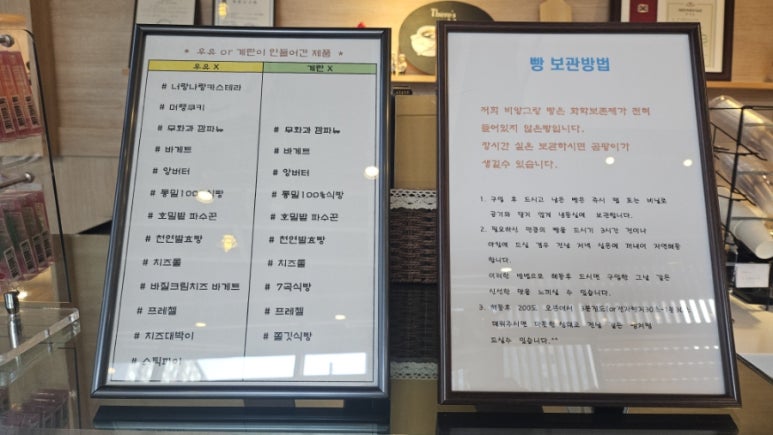 There's
* 우유 or 계란이 안들어간 제품 *
우유 X 계란 X
# 너랑나랑카스테라
# 머랭쿠키
# 무화과 깜파뉴 # 무화과 깜파뉴
# 바게트 # 바게트
# 앙버터 # 앙버터
# 통밀100%식빵 # 통밀100%식빵
# 호밀밤 파수꾼 # 호밀밤 파수꾼
# 천연발효빵 # 천연발효빵
# 치즈롤 # 치즈롤
# 바질크림치즈 바게트 # 7곡식빵
# 프레첼 # 프레첼
# 치즈대박이 # 쫄깃식빵
# 스틱파이
빵 보관방법
저희 비앙그랑 빵은 화학보존제가 전혀
들어있지 않은빵입니다.
장시간 실온 보관하시면 곰팡이가
생길수 있습니다.
1. 구입 후 드시고 남은 빵은 즉시 랩 또는 비닐로
공기와 닿지 않게 냉동실에 보관합니다.
2. 필요하신 만큼의 빵을 드시기 3시간 전이나
아침에 드실 경우 전날 저녁 실온에 꺼내어 자연해동
합니다.
이러한 방법으로 해동후 드시면 구입한 그날 같은
신선한 맛을 느끼실 수 있습니다.
3. 해동후 200도 오븐에서
데워주시면 갓 싶은
드실수 있습니다.^^